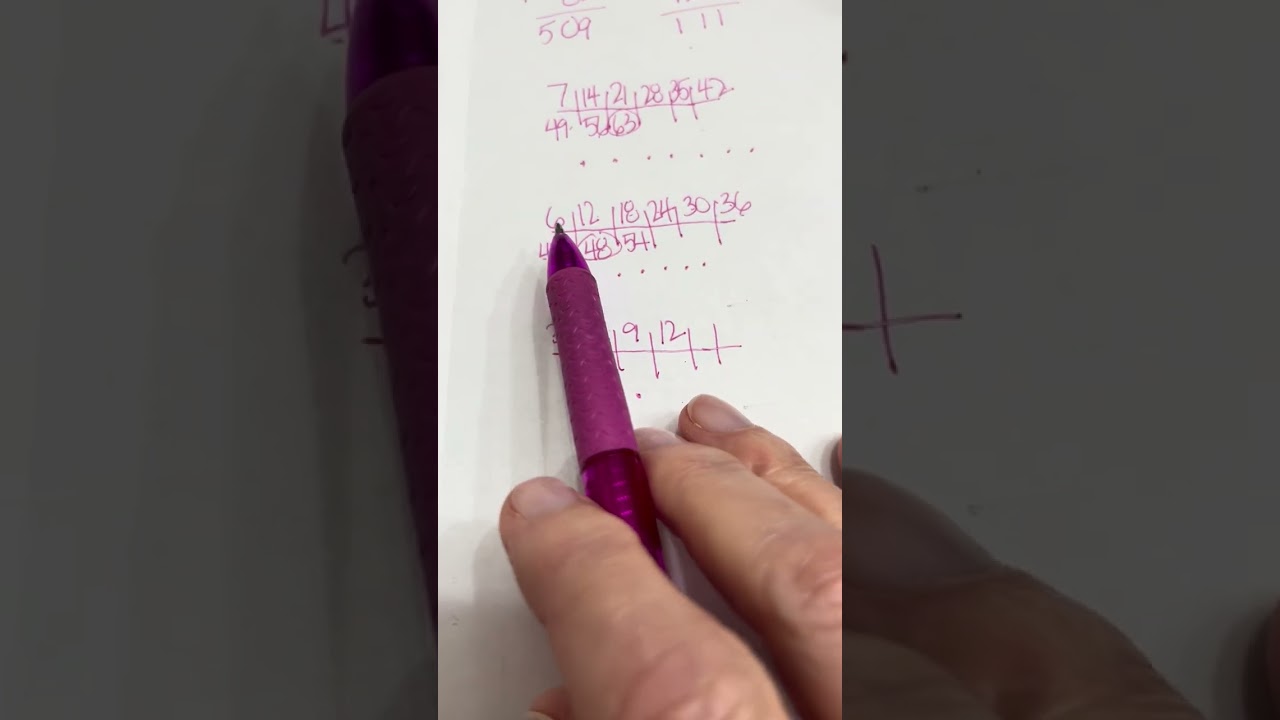 509 111
7 14 21 28 35 42
49 56 63
6 12 18 24 30 36
48 54
9 12